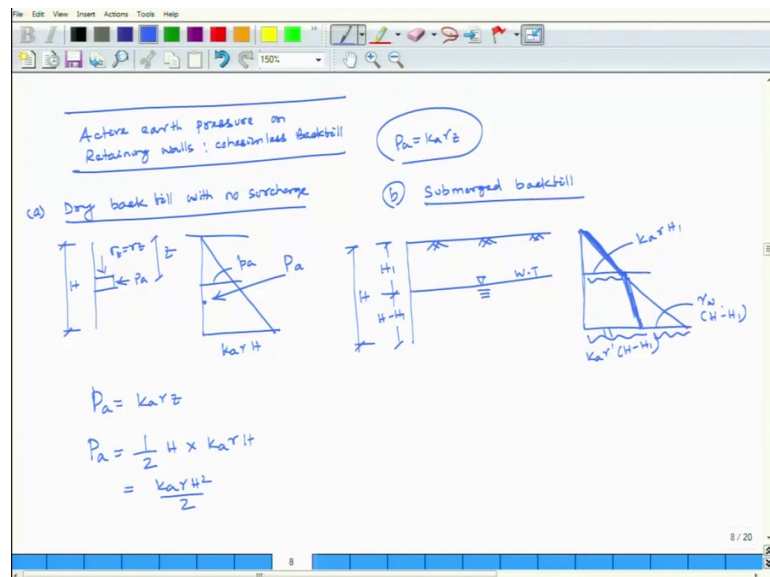 File Edit View Insert Actions Tools Help
150%
Active earth pressure on
Retaining walls : cohesionless Backfill
Pa = kaγz
(a) Dry back fill with no surcharge
(b) Submerged backfill
H
σz=γz
z
Pa
pa
Pa
kaγH
H
H1
H-H1
W.T
kaγH1
γw
(H-H1)
kaγ'(H-H1)
Pa = kaγz
Pa = 1/2 H × kaγH
= kaγH²/2
8 / 20
8